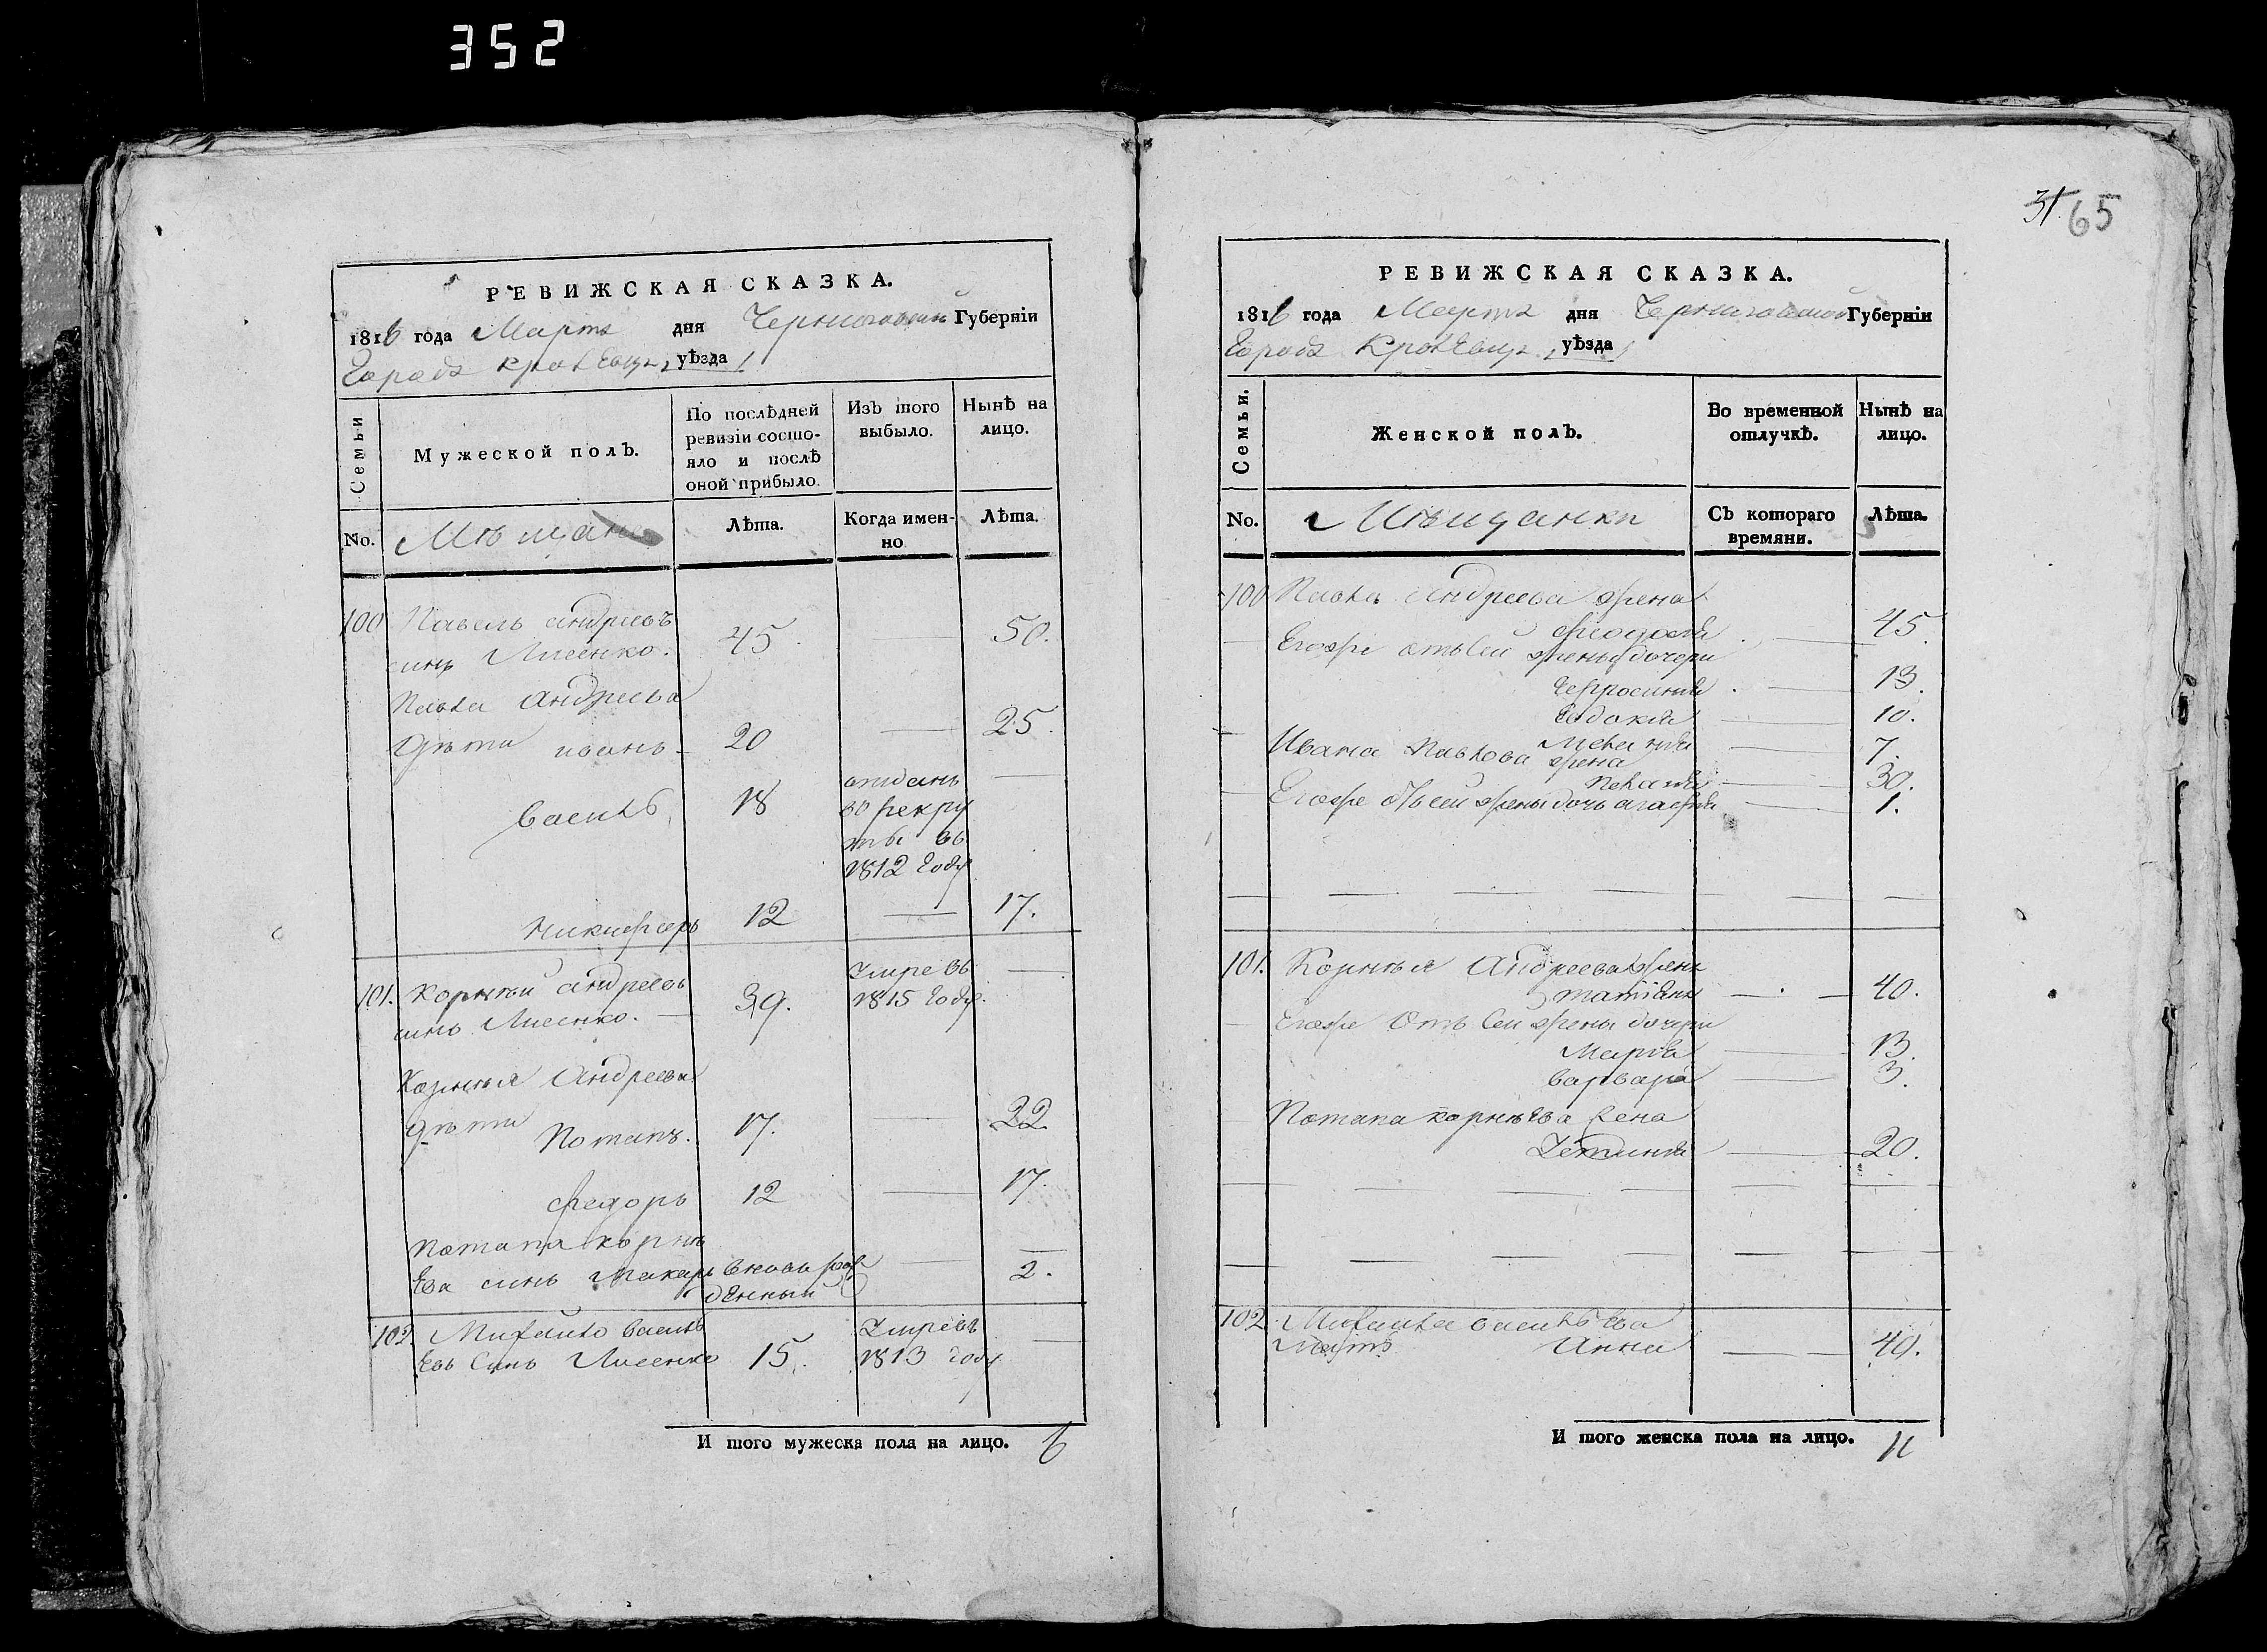 352
РЕВИЖСКАЯ СКАЗКА.
1816 года Марта дня Черниговской Губерніи
Города Кролевца уѣзда
Семьи
Мужеской полъ.
По послѣдней
ревизіи состо-
яло и послѣ
оной прибыло.
Изъ того
выбыло.
Нынѣ на
лицо.
No.
Мѣщане
Лѣта.
Когда имен-
но
Лѣта.
100 Павелъ андреевъ
синъ Лисенко. 45 50.
Павла андреева
дѣти иванъ 20 25.
василь 18 отданъ
во рекру
ты въ
1812 году
никифоръ 12 17.
101. Корнѣй андреевъ
синъ Лисенко. 39. умре въ
1815 году.
Корнѣя андреева
дѣти Потапъ. 17. 22
федоръ 12 17.
Потапа корнѣ
ева синъ макаръ вновь рож
денный 2.
102. Михайло василь
евъ синъ Лисенко 15. умре въ
1813 году
И того мужеска пола на лицо. 6
31 65
РЕВИЖСКАЯ СКАЗКА.
1816 года Марта дня Черниговской Губерніи
Города Кролевца уѣзда
Семьи.
Женской полъ.
Во временной
отлучкѣ.
Нынѣ на
лицо.
No.
Мѣщанки
Съ котораго
времяни.
Лѣта.
100 Павла андреева жена
феодосія 45.
Егоже отъ сей жены дочери
Ефросинія 13.
Евдокія 10.
7.
Ивана Павлова жена
Пелагія 30.
Егоже отъ сей жены дочь агафія 1.
101. Корнѣя андреева жена
татіяна 40.
Егоже отъ сей жены дочери
Марія 13.
варвара 3.
Потапа корнѣева жена
устинія 20.
102 Михайла васильева
мать Анна 40.
И того женска пола на лицо. 11